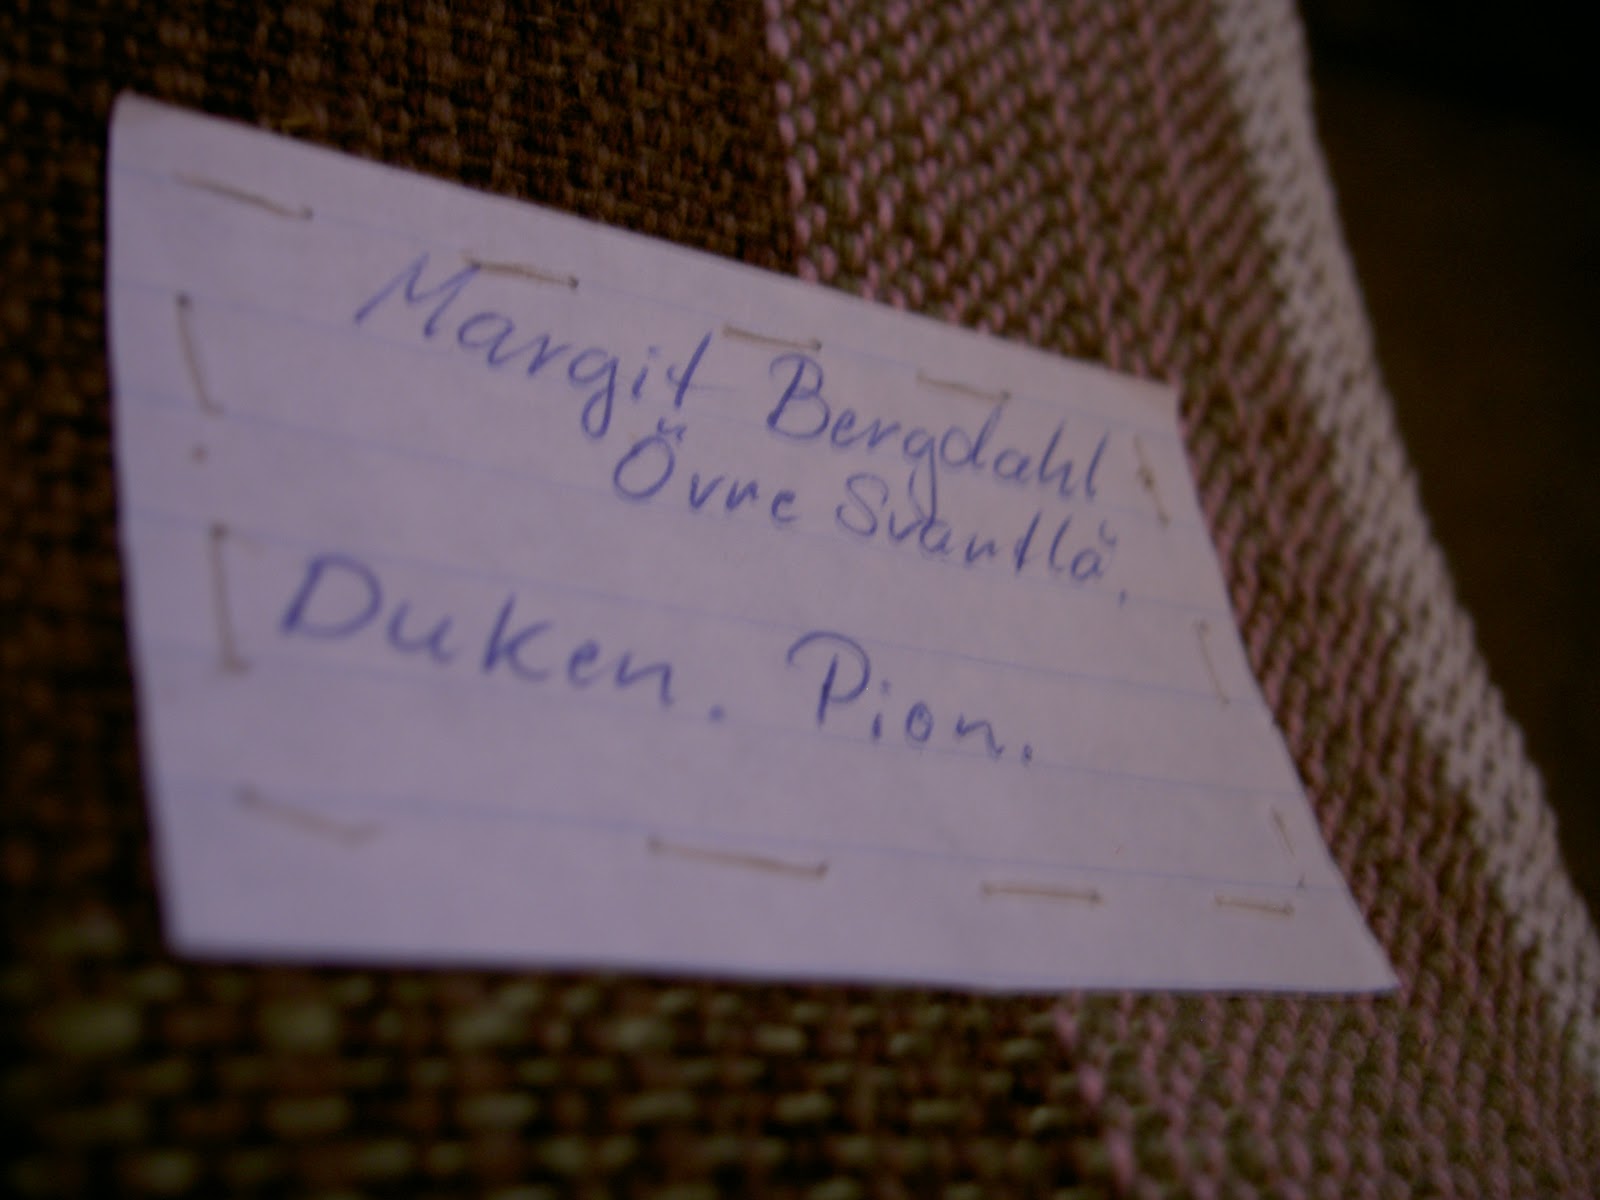 Margit Bergdahl
Övre Svantlå.
Duken. Pion.